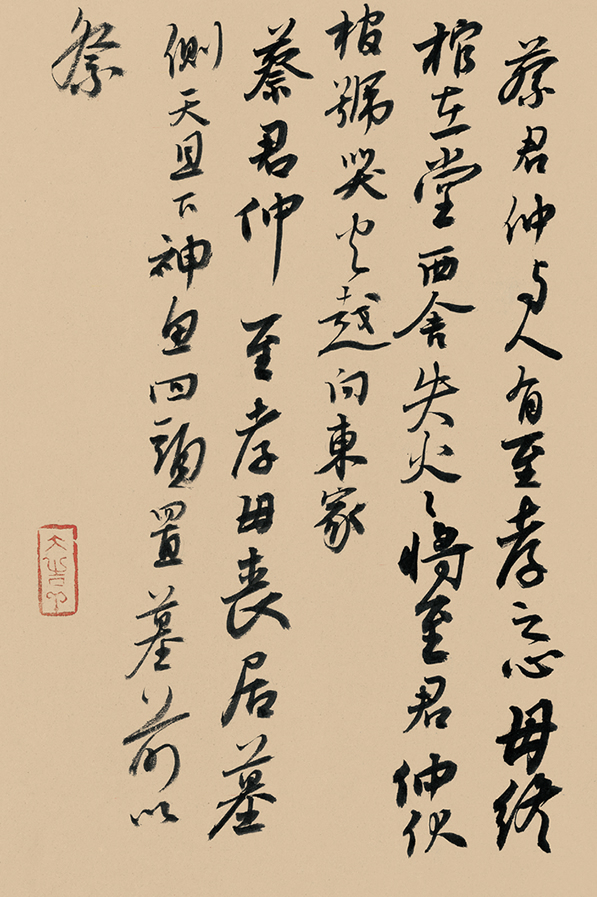 蔡君仲与人有至孝之心母終
棺在堂西舍失火〻將至君仲伏
棺號哭火越向東家
蔡君仲至孝母喪居墓
側天且下神魚四頭置墓前以
祭